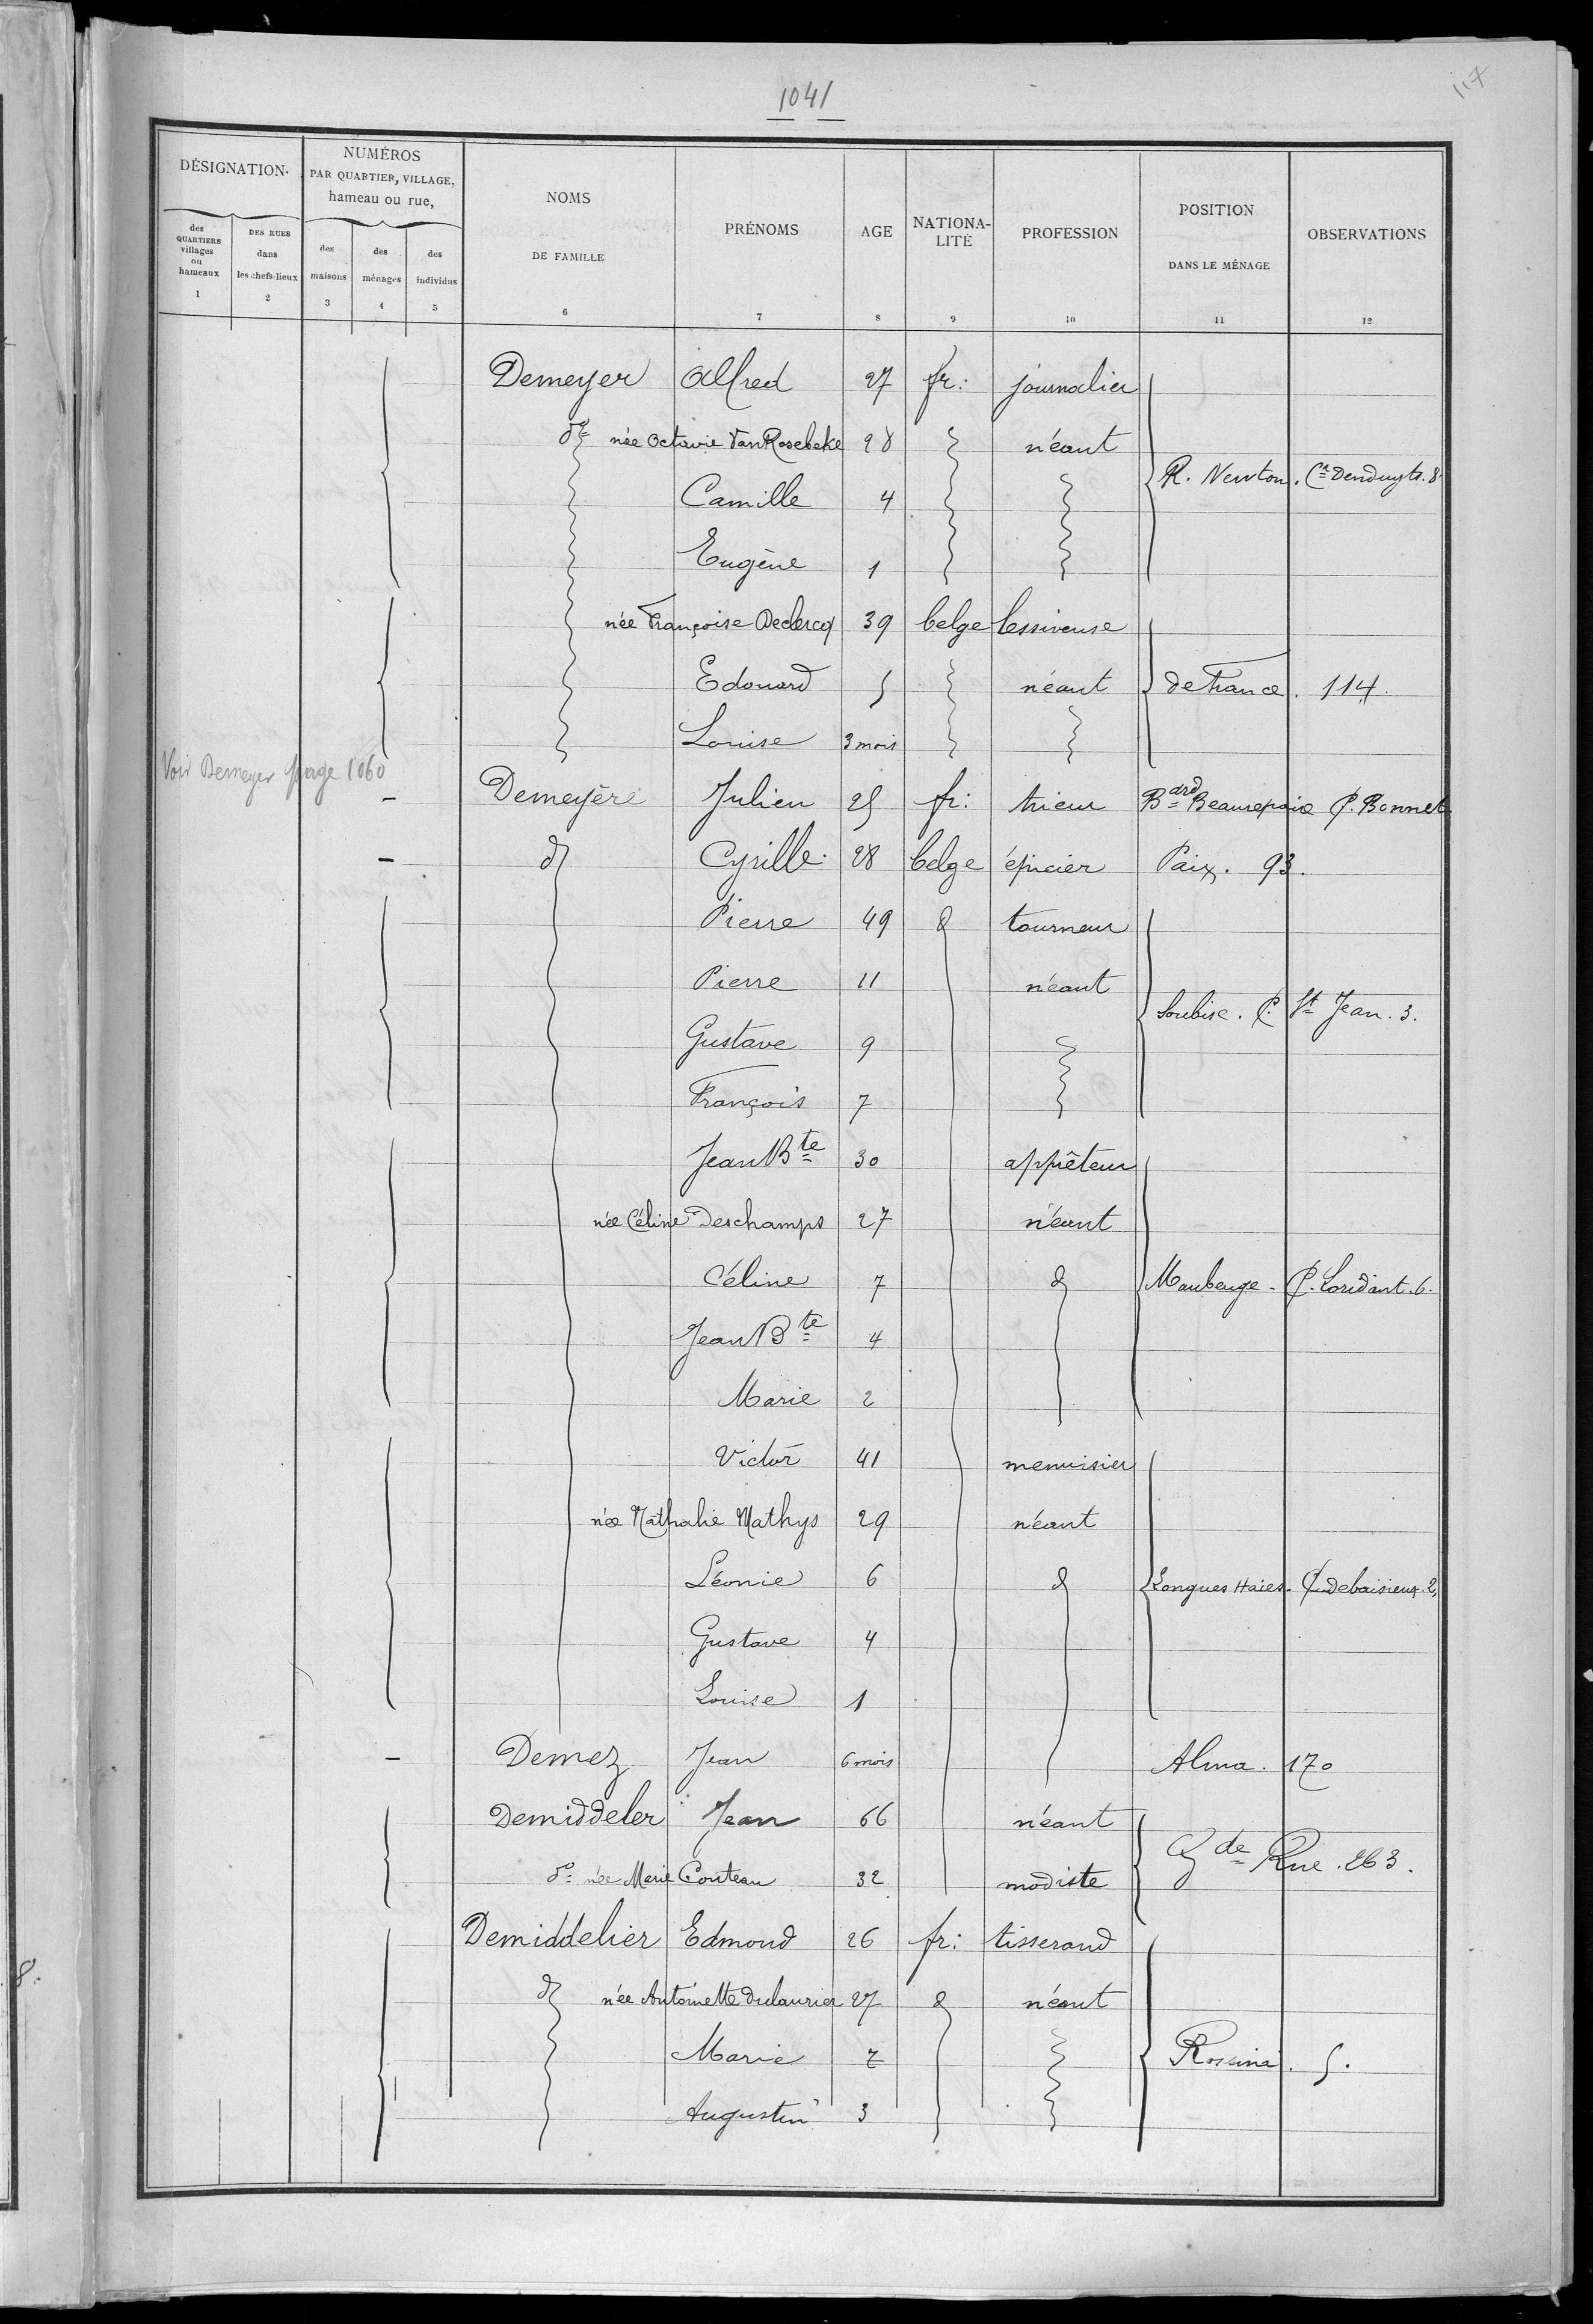 1041
117
DÉSIGNATION.
NUMÉROS
PAR QUARTIER, VILLAGE,
hameau ou rue,
des QUARTIERS villages ou hameaux
DES RUES dans les chefs-lieux
des maisons
des ménages
des individus
NOMS
DE FAMILLE
PRÉNOMS
AGE
NATIONA-
LITÉ
PROFESSION
POSITION
DANS LE MÉNAGE
OBSERVATIONS
1 2 3 4 5 6 7 8 9 10 11 12
Demeyer Alfred 27 fr: journalier
do née Octavie VanRosebeke 28 néant
R. Newton. Cn Denduyts. 8.
Camille 4
Eugène 1
née Françoise Declercq 39 belge lessiveuse
Edouard 5 néant de France. 114.
Louise 3 mois
Voir Demeyer page 1060
- Demeyère Julien 25 fr: trieur Bard Beaurepaire C. Bonnet
- d Cyrille 28 belge épicier Paix. 93.
Pierre 49 d tourneur
Pierre 11 néant
Soubise. C. St Jean. 3.
Gustave 9
François 7
Jean Bte 30 appêteur
née Céline Deschamps 27 néant
Céline 7 d Maubeuge - C. Loridant. 6.
Jean Bte 4
Marie 2
Victor 41 menuisier
née Nathalie Mathys 29 néant
Léonie 6 d Longues Haies. C. debaisieux. 2.
Gustave 4
Louise 1
- Demez Jean 6 mois Alma. 170
Demiddeler Jean 66 néant
Gde Rue. 263.
do née Marie Couteau 32 modiste
Demiddelier Edmond 26 fr: tisserand
d née Antoinette Dulaurier 27 d néant
Marie 7 Rossini. 5.
Augustin 3
8.